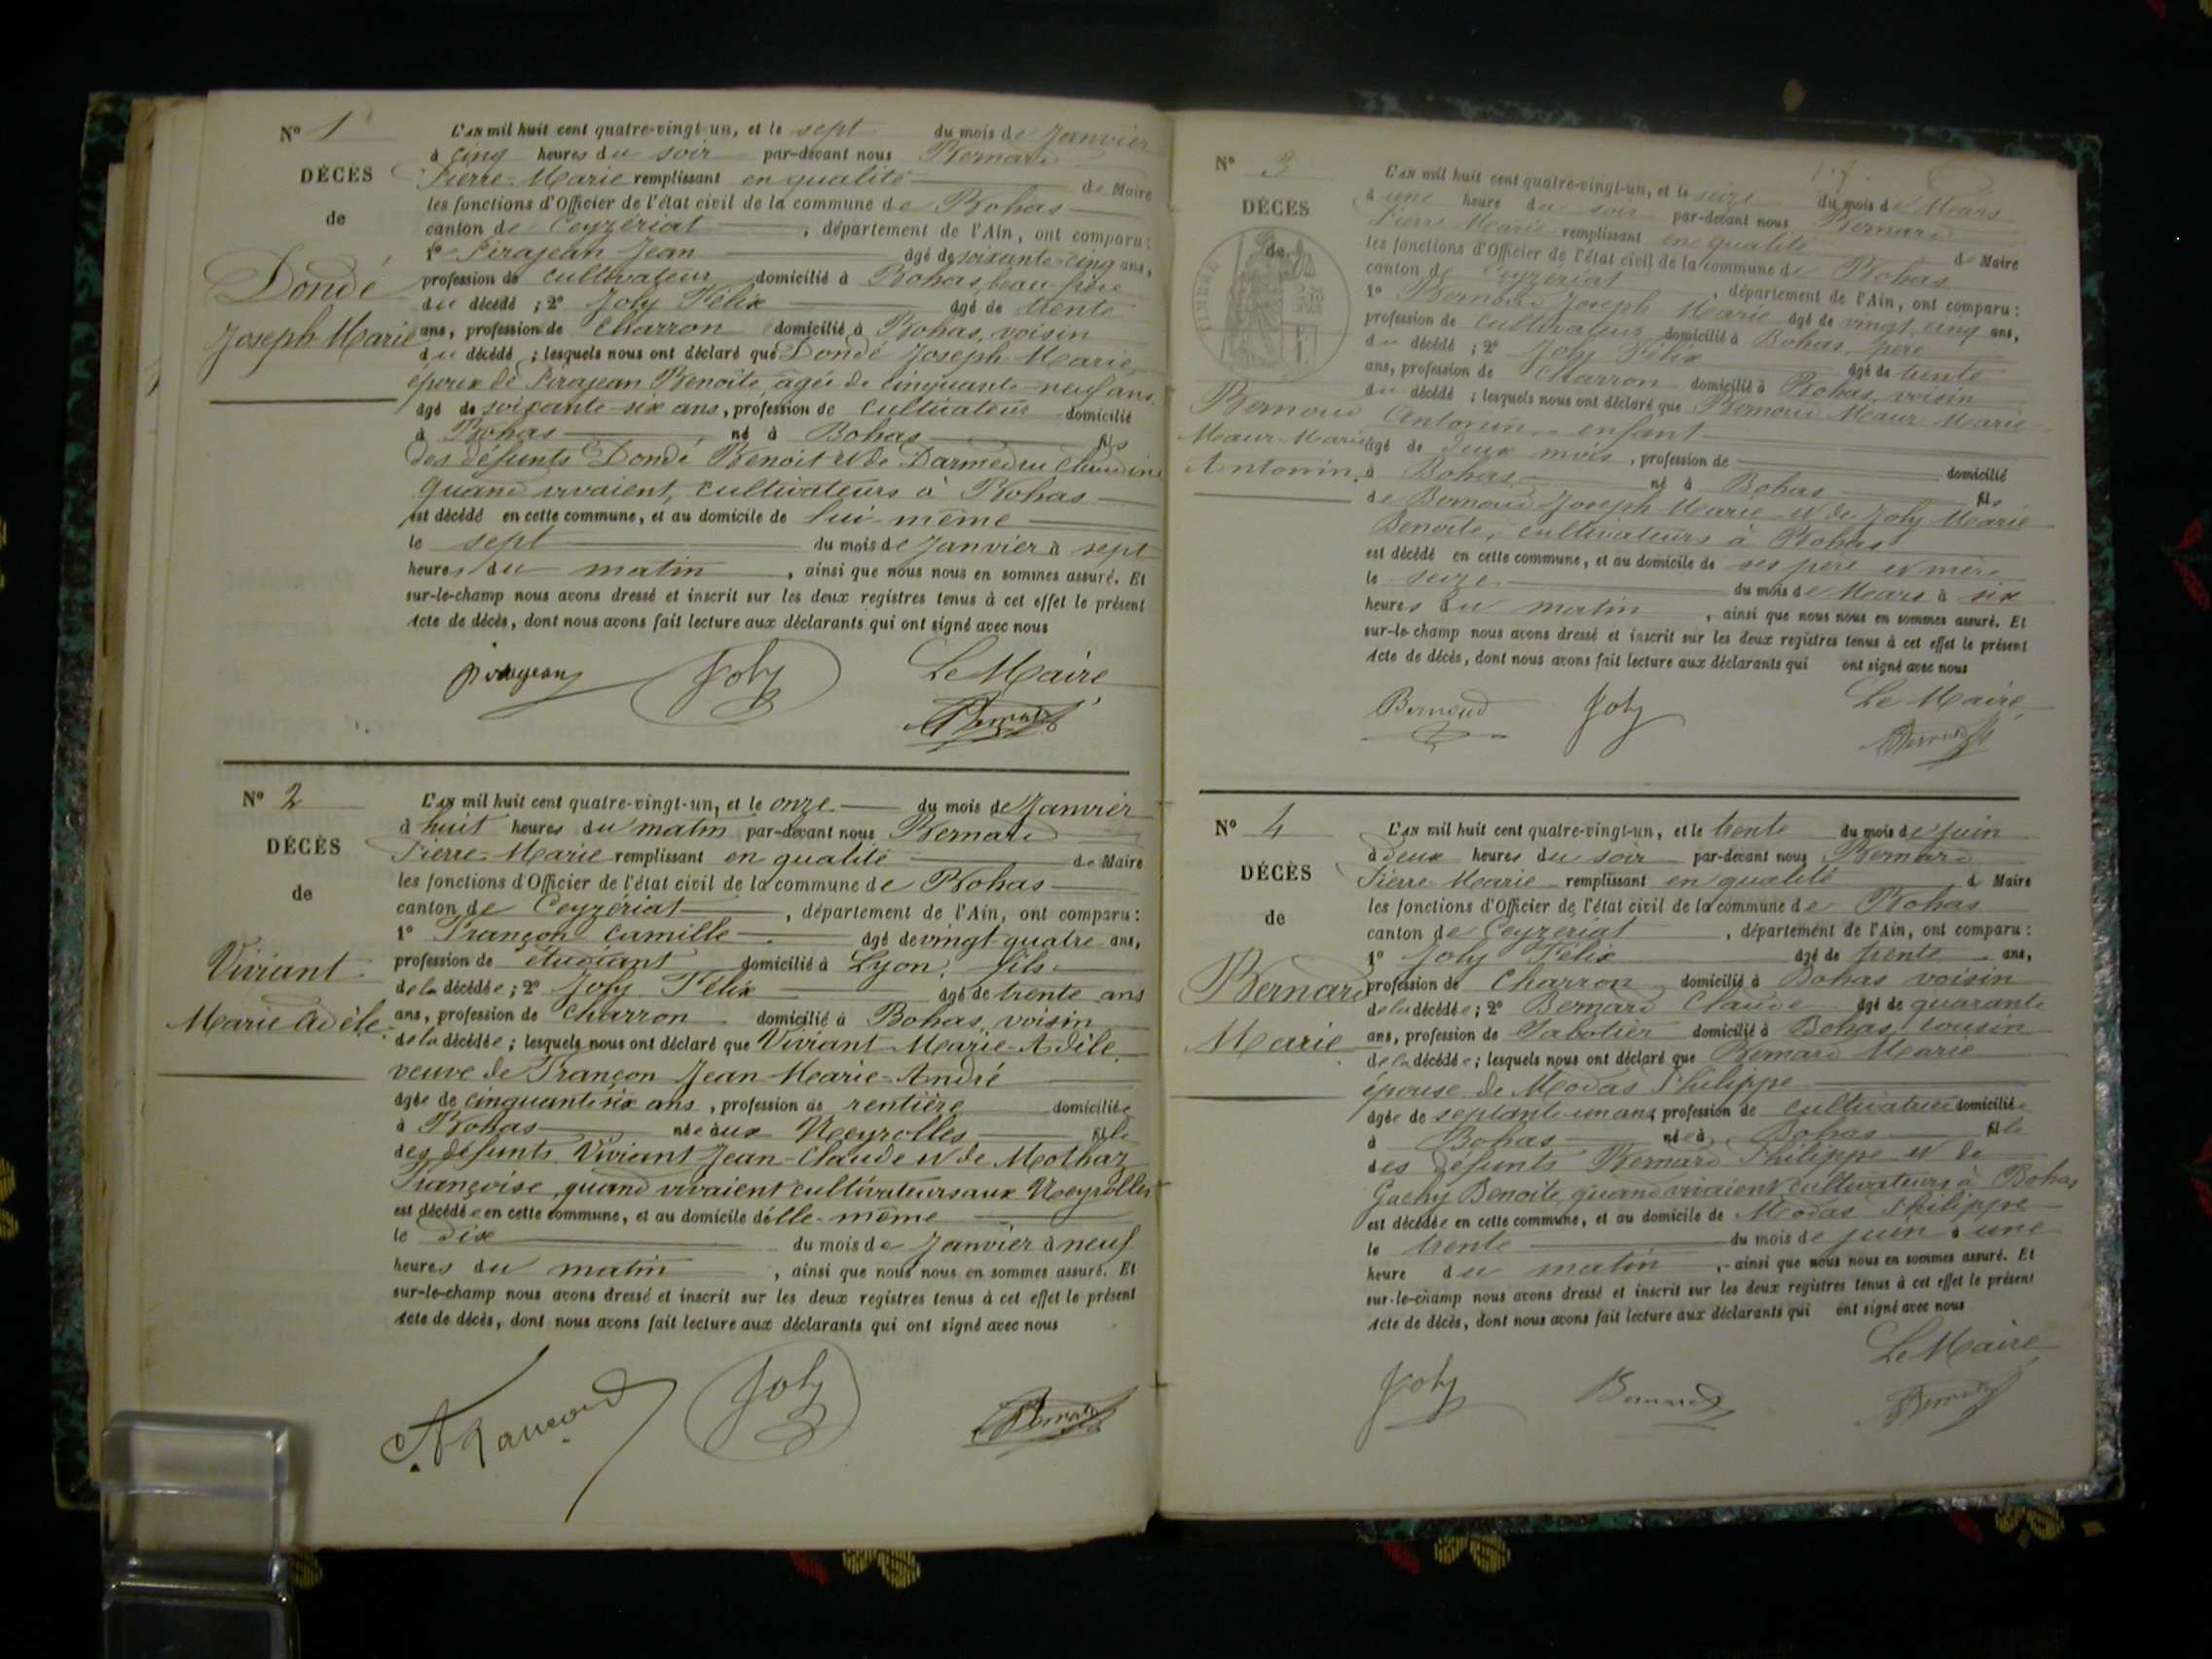 Nº 1
DÉCÈS
de
Dondé
Joseph Marie
L'an mil huit cent quatre-vingt-un, et le sept du mois de Janvier
à cinq heures du soir par-devant nous Bernard
Pierre-Marie remplissant en qualité de Maire
les fonctions d'Officier de l'état civil de la commune de Bohas
canton de Ceyzériat, département de l'Ain, ont comparu:
1º Pirajean Jean âgé de soixante-cinq ans,
profession de cultivateur domicilié à Bohas, beau-frère
du décédé; 2º Joly Félix âgé de trente
ans, profession de Charron domicilié à Bohas, voisin
du décédé; lesquels nous ont déclaré que Dondé Joseph-Marie,
époux de Pirajean Benoîte, âgée de cinquante-neuf ans
âgé de soixante-six ans, profession de cultivateur domicilié
à Bohas né à Bohas fils
des défunts Dondé Benoit et de Darmedru Claudine
quand vivaient, cultivateurs à Bohas
est décédé en cette commune, et au domicile de lui-même
le sept du mois de Janvier à sept
heures du matin, ainsi que nous nous en sommes assuré. Et
sur-le-champ nous avons dressé et inscrit sur les deux registres tenus à cet effet le présent
Acte de décès, dont nous avons fait lecture aux déclarants qui ont signé avec nous
pirajean Joly Le Maire
Bernard
Nº 2
DÉCÈS
de
Viviant
Marie Adèle
L'an mil huit cent quatre-vingt-un, et le onze du mois de Janvier
à huit heures du matin par-devant nous Bernard
Pierre-Marie remplissant en qualité de Maire
les fonctions d'Officier de l'état civil de la commune de Bohas
canton de Ceyzériat, département de l'Ain, ont comparu:
1º Françon Camille âgé de vingt-quatre ans,
profession de étudiant domicilié à Lyon, fils
de la décédée; 2º Joly Félix âgé de trente ans
ans, profession de Charron domicilié à Bohas, voisin
de la décédée; lesquels nous ont déclaré que Viviant Marie-Adèle
veuve de Françon Jean-Marie-André
âgée de cinquante six ans, profession de rentière domiciliée
à Bohas née aux Neyrolles fille
des défunts Viviant Jean-Claude et de Mothaz
Françoise, quand vivaient cultivateurs aux Neyrolles
est décédée en cette commune, et au domicile d'elle-même
le dix du mois de Janvier à neuf
heures du matin, ainsi que nous nous en sommes assuré. Et
sur-le-champ nous avons dressé et inscrit sur les deux registres tenus à cet effet le présent
Acte de décès, dont nous avons fait lecture aux déclarants qui ont signé avec nous
Joly Bernard
Nº 3
DÉCÈS
de
Bernoud
Maur-Marie
Antonin.
L'an mil huit cent quatre-vingt-un, et le seize du mois de Mars
à une heure du soir par-devant nous Bernard
Pierre Marie remplissant en qualité de Maire
les fonctions d'Officier de l'état civil de la commune de Bohas
canton de Ceyzériat, département de l'Ain, ont comparu:
1º Bernoud Joseph Marie âgé de vingt cinq ans,
profession de cultivateur domicilié à Bohas, père
du décédé; 2º Joly Félix âgé de trente
ans, profession de Charron domicilié à Bohas, voisin
du décédé; lesquels nous ont déclaré que Bernoud Maur Marie
Antonin, enfant
âgé de deux mois, profession de domicilié
à Bohas né à Bohas fils
de Bernoud Joseph Marie et de Joly Marie
Benoite, cultivateurs à Bohas
est décédé en cette commune, et au domicile de ses père et mère
le seize du mois de Mars à six
heures du matin, ainsi que nous nous en sommes assuré. Et
sur-le-champ nous avons dressé et inscrit sur les deux registres tenus à cet effet le présent
Acte de décès, dont nous avons fait lecture aux déclarants qui ont signé avec nous
Bernoud Joly Le Maire
Bernard
Nº 4
DÉCÈS
de
Bernard
Marie
L'an mil huit cent quatre-vingt-un, et le trente du mois de juin
à deux heures du soir par-devant nous Bernard
Pierre-Marie remplissant en qualité d Maire
les fonctions d'Officier de l'état civil de la commune de Bohas
canton de Ceyzériat, département de l'Ain, ont comparu:
1º Joly Félix âgé de trente ans,
profession de Charron domicilié à Bohas voisin
de la décédée; 2º Bernard Claude âgé de quarante
ans, profession de Sabotier domicilié à Bohas cousin
de la décédée; lesquels nous ont déclaré que Bernard Marie
épouse de Modas Philippe
âgée de septante-un ans, profession de cultivatrice domiciliée
à Bohas née à Bohas fille
des défunts Bernard Philippe et de
Gachy Benoite, quand vivaient cultivateurs à Bohas
est décédée en cette commune, et au domicile de Modas Philippe
le trente du mois de juin à une
heure du matin, ainsi que nous nous en sommes assuré. Et
sur-le-champ nous avons dressé et inscrit sur les deux registres tenus à cet effet le présent
Acte de décès, dont nous avons fait lecture aux déclarants qui ont signé avec nous
Le Maire
Joly Bernard Bernard